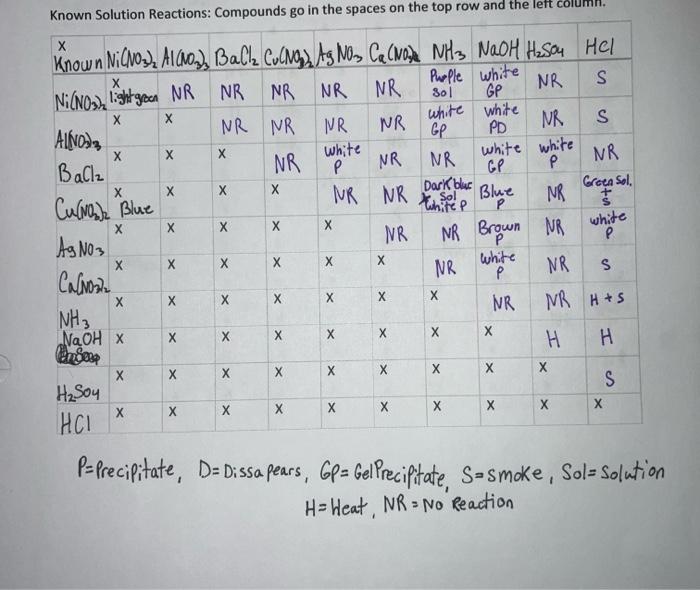 Known Solution Reactions: Compounds go in the spaces on the top row and the left column.
X
Known Ni(NO3)2 Al(NO3)3 BaCl2 Cu(NO3)2 AgNO3 Ca(NO3)2 NH3 NaOH H2SO4 HCl
Ni(NO3)2 X light green NR NR NR NR NR Purple sol white GP NR S
Al(NO3)3 X X NR NR NR NR white GP white PD NR S
BaCl2 X X X NR white P NR NR white GP white P NR
Cu(NO3)2 X Blue X X X NR NR Dark blue Sol + white P Blue P NR Green Sol. + S
AgNO3 X X X X X NR NR Brown P NR white P
Ca(NO3)2 X X X X X X NR white P NR S
NH3 X X X X X X X NR NR H + S
NaOH X X X X X X X X H H
H2SO4 X X X X X X X X X S
HCl X X X X X X X X X X
P=Precipitate, D=Dissapears, GP=Gel Precipitate, S=smoke, Sol=Solution
H=Heat, NR=No Reaction